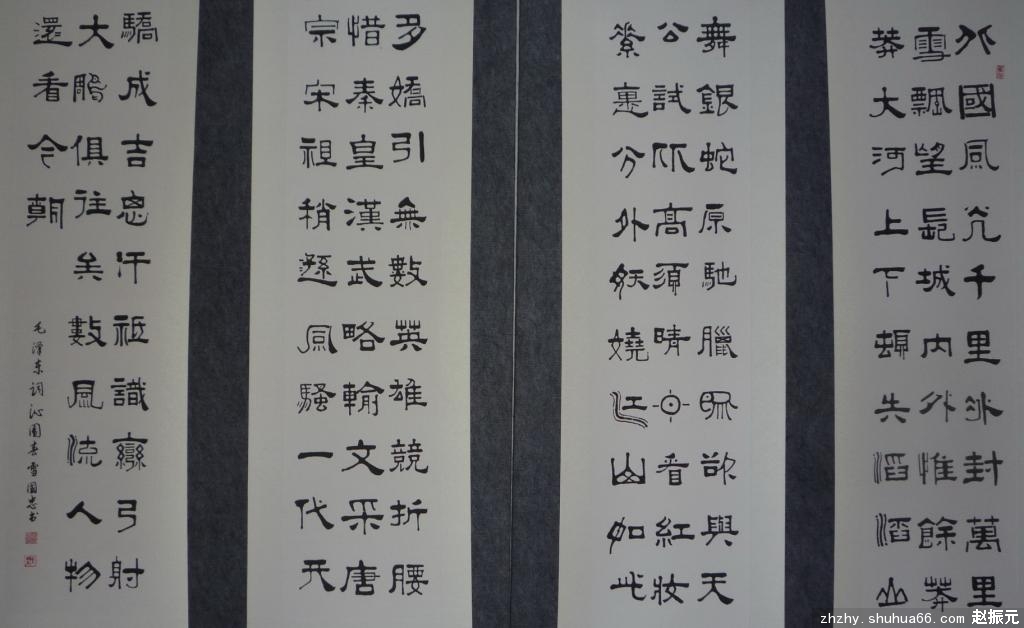 北國風光千里冰封萬里
雪飄望長城內外惟餘莽
莽大河上下頓失滔滔山
舞銀蛇原馳臘象欲與天
公試比高須晴日看紅妝
素裹分外妖嬈江山如此
多嬌引無數英雄競折腰
惜秦皇漢武略輸文采唐
宗宋祖稍遜風騷一代天
驕成吉思汗祗識彎弓射
大鵰俱往矣數風流人物
還看今朝
毛澤东詞沁園春雪國忠书
zhzhy.shuhua66.com 赵振元